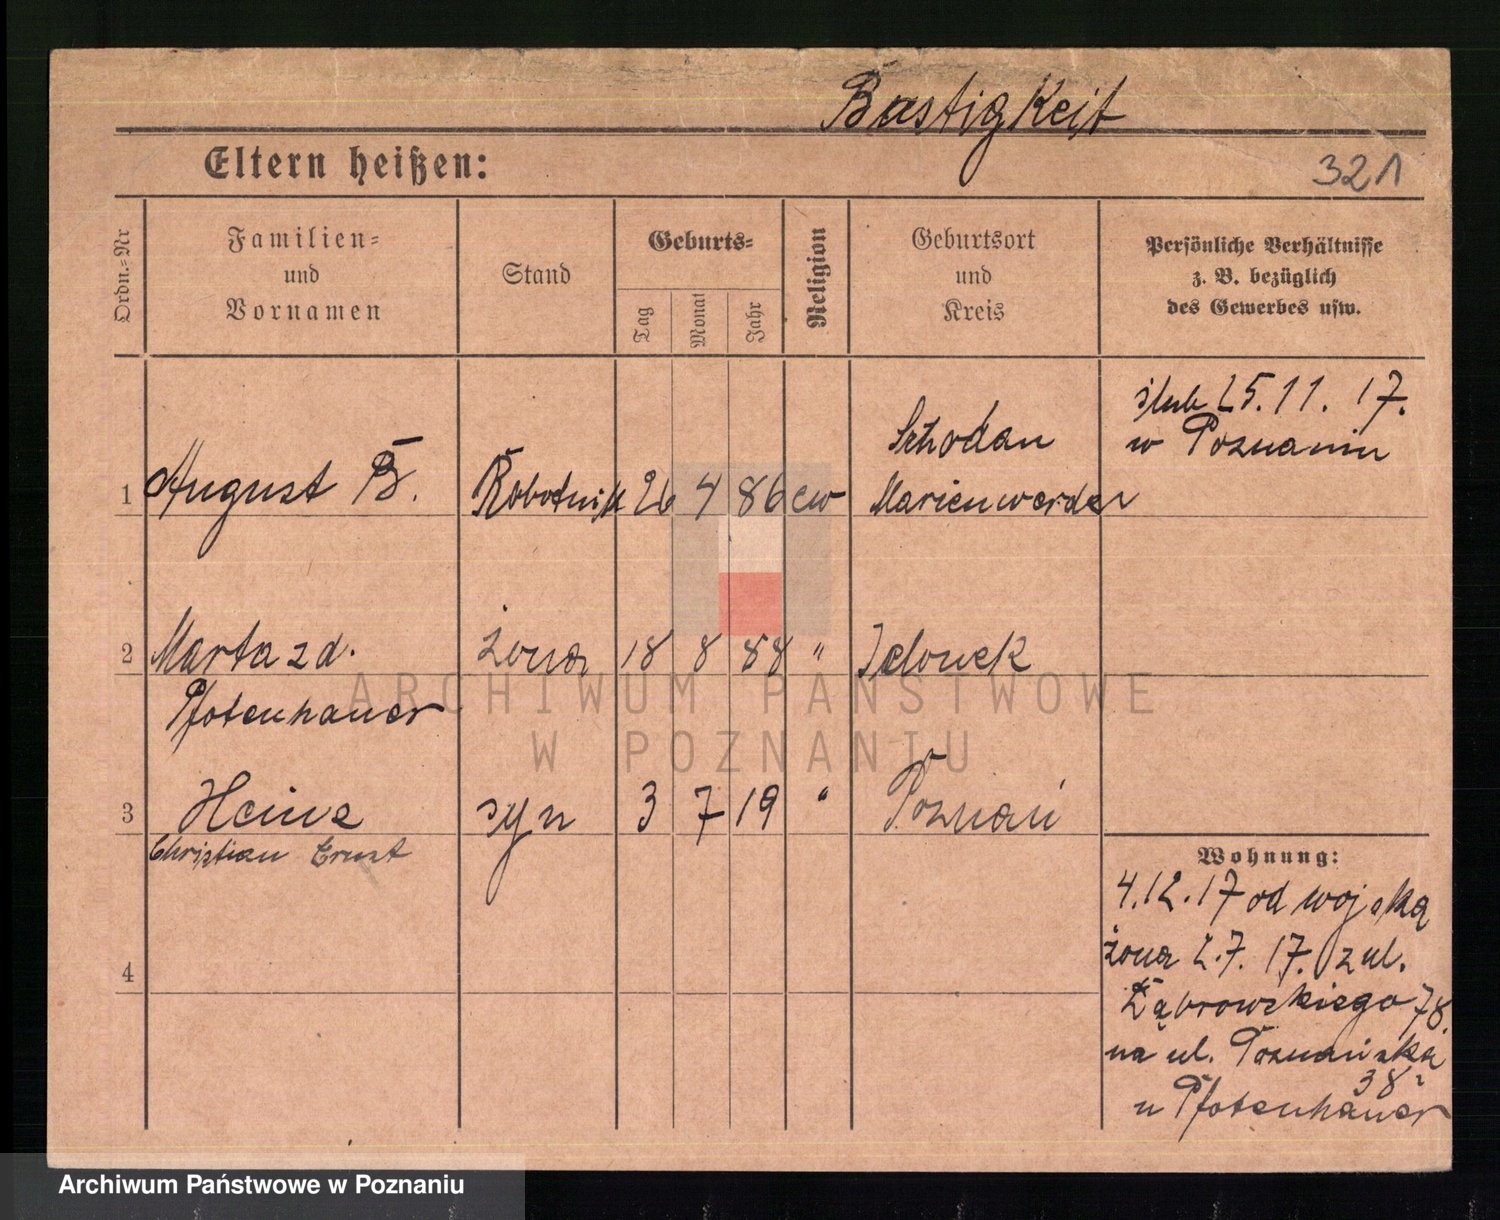 Bastigkeit
Eltern heißen:
321
Ordn.-Nr
Familien-
und
Vornamen
Stand
Geburts-
Tag
Monat
Jahr
Religion
Geburtsort
und
Kreis
Persönliche Verhältnisse
z. B. bezüglich
des Gewerbes usw.
1 August B. Robotnik 26 4 86 ew
Marienwerder
ślub 25. 11. 17.
w Poznaniu
2 Marta z d. żona 18 8 88 "
Pfotenhauer
3 Heinz syn 3 7 19 " Poznań
Christian Ernst
4
Wohnung:
4.12.17 od wojska
żona 2.7.17. z ul.
Dąbrowskiego 78
na ul. Poznańską
38
u Pfotenhauer
ARCHIWUM PAŃSTWOWE
W POZNANIU
Archiwum Państwowe w Poznaniu